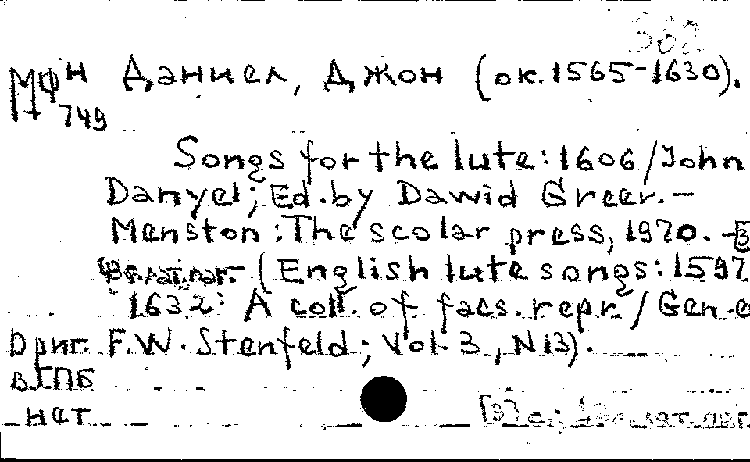 362
МФН Даниел, Джон (ок. 1565-1630).
749
Songs for the lute: 1606 / John
Danyel; Ed. by Dawid Greer. —
Menston: The scolar press, 1970. — [3
(English lute songs: 1597
1632: A coll. of facs. repr. / Gen. e
Ориг. F.W. Stenfeld; Vol. 3, N 13).
в ГПБ
нет
[3] с;